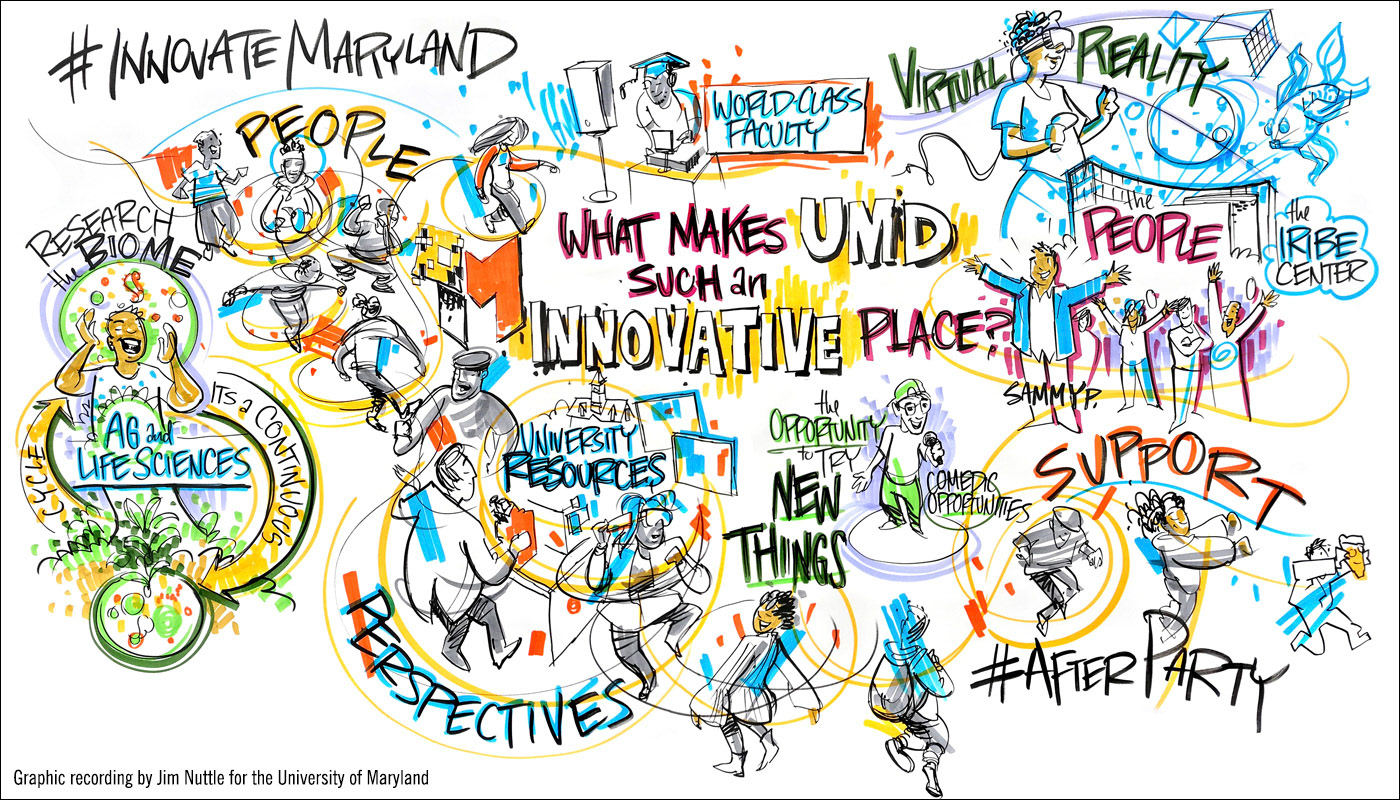 #INNOVATE MARYLAND
PEOPLE
WORLD-CLASS
FACULTY
VIRTUAL REALITY
RESEARCH
the BIOME
WHAT MAKES UMD
SUCH an
INNOVATIVE PLACE?
the
PEOPLE
the
IRIBE
CENTER
SAMMY P.
AG and
LIFE SCIENCES
IT'S a CONTINUOUS
CYCLE
UNIVERSITY
RESOURCES
the
OPPORTUNITY
to TRY
NEW
THINGS
COMEDIC
OPPORTUNITIES
SUPPORT
PERSPECTIVES
#AFTER PARTY
Graphic recording by Jim Nuttle for the University of Maryland